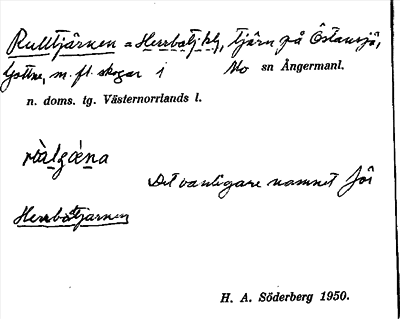 Rulltjärnen = Herrbåtj. kly, tjärn på Östansjö,
Gottne, m. fl. skogar i Mo sn Ångermanl.
n. doms. tg. Västernorrlands l.
Det vanligare namnet för
Herrbåtjärnen
H. A. Söderberg 1950.